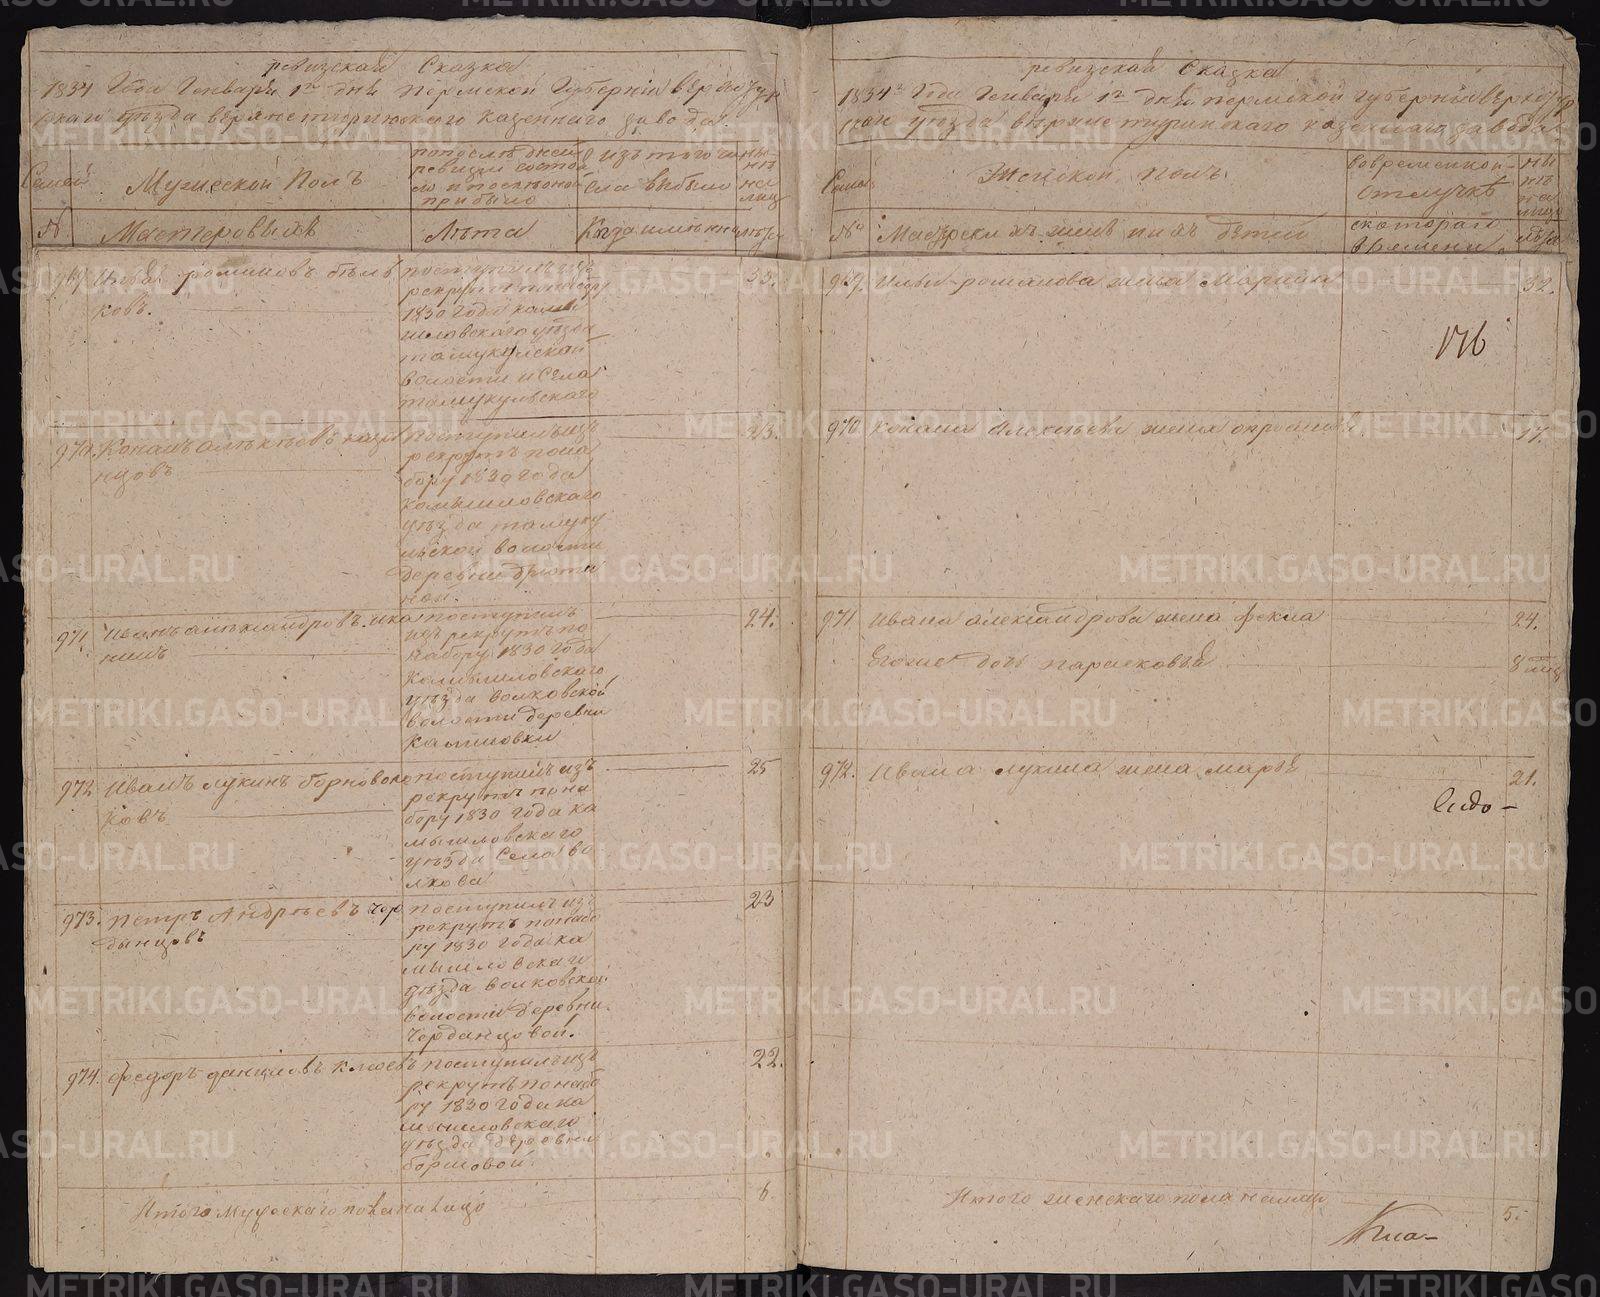 ревизская Сказка
1834 Года Генваря 1го дня пермской Губернии верхотур
скаго уѣзда верхнетуринскаго казеннаго завода.
Семей
Мужеской Полъ
попослѣ дней
ревизии состоя
ло и послѣоной
прибыло
изъ того чи
сла выбыло
ны
нѣ
на
лицо
№
Мастеровыхъ
Лѣта
Когда имянно
лѣта
969. Илья романовъ бѣль
ковъ.
поступилъ изъ
рекрутъ понабору
1830 года камы
шловскаго уѣзда
тамукулской
волости и Села
тамукульскаго
35.
970. Конанъ алѣксѣевъ казан
цовъ
поступилъ изъ
рекрутъ пона
бору 1830 года
Комышловскаго
уѣзда тамуку
льской волости
деревни
ной.
23.
971. Иванъ алѣксандровъ ика
нинъ
поступилъ
изъ рекрутъ по
набору 1830 года
Комышловскаго
уѣзда волковской
волости деревни
Калиновки
24.
972 Иванъ лукинъ борноволо
ковъ
поступилъ изъ
рекрутъ пона
бору 1830 года ка
мышловскаго
уѣзда Села во
лкова
25
973. петръ Андрѣевъ чер
данцовъ
поступилъ изъ
рекрутъ понабо
ру 1830 года ка
мышловскаго
уѣзда волковской
волости деревни
Черданцовой.
23
974. федоръ даниловъ клюевъ
поступилъ изъ
рекрутъ понабо
ру 1830 года ка
мышловскаго
уѣзда деревни
боршовой.
22.
Итого Мужескаго пола налицо
6.
ревизская Сказка
1834го Года Генваря 1го дня пермской губернии верхотур
скаго уѣзда верхнетуринскаго казеннаго завода
Семей
Женской полъ
вовременной
отлучкѣ
ны
нѣ
на
лицо
№
Мастерскихъ женъ и ихъ дѣтей
скотораго
времени
лѣта
969. Ильи романова жена Марина
32.
176
970 Конана Алексѣева жена
17.
971 Ивана александрова жена фекла
24.
Егоже дочь парасковья
8 мец
972. Ивана лукина жена марья
21.
Итого женскаго пола налицо
5.